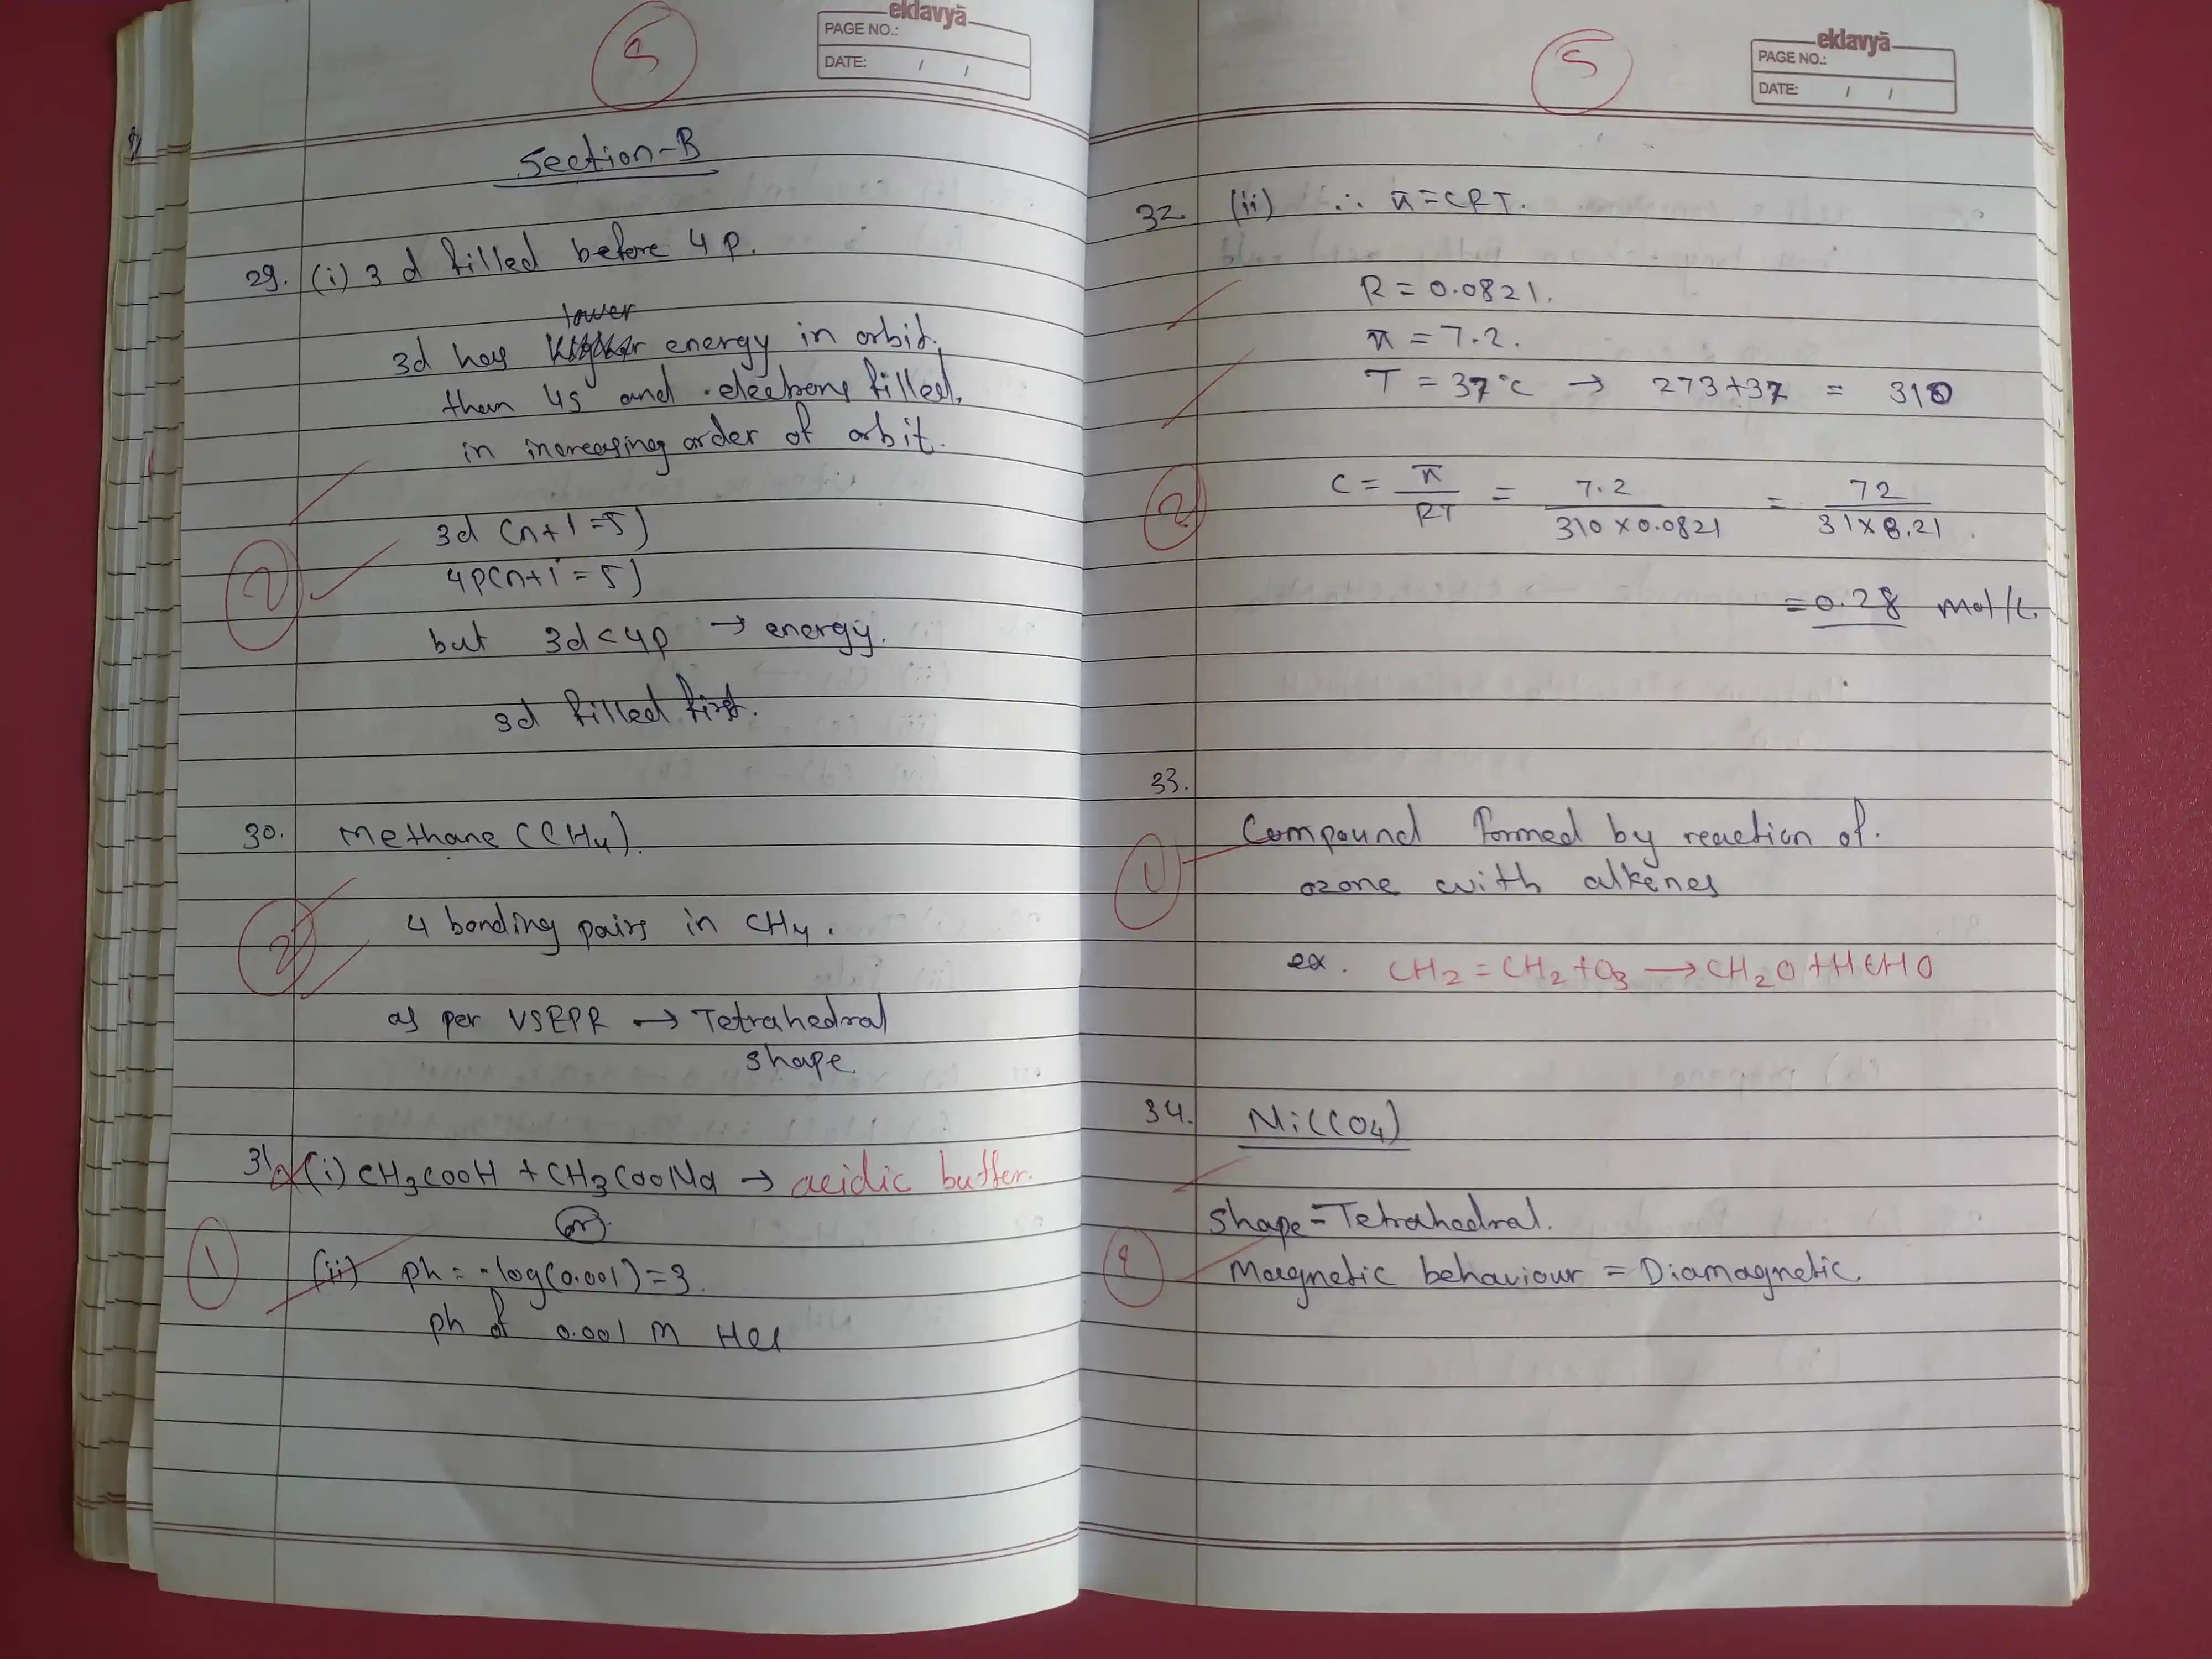 5
eklavyā
PAGE NO.:
DATE: / /
Section-B
29. (i) 3d filled before 4p.
lower
3d has energy in orbit.
than 4s and electrons filled.
in increasing order of orbit.
3d (n+l=5)
2
4p(n+l=5)
but 3d<4p → energy.
3d filled first.
30. Methane (CH4).
2
4 bonding pairs in CH4.
as per VSEPR → Tetrahedral
shape
31 (i) CH3COOH + CH3COONa → acidic buffer.
(or)
1
(ii) ph = -log(0.001)=3.
ph of 0.001 M HCl
5
eklavyā
PAGE NO.:
DATE: / /
32. (ii) ∴ π=CRT.
R = 0.0821.
π = 7.2.
T = 37°C → 273+37 = 310
2
C = π/RT = 7.2/310×0.0821 = 72/31×8.21
=0.28 mol/L.
33.
1
Compound formed by reaction of.
ozone with alkenes
ex. CH2=CH2+O3 → CH2O+HCHO
34. Ni(CO4)
Shape=Tetrahedral.
2
Magnetic behaviour = Diamagnetic.